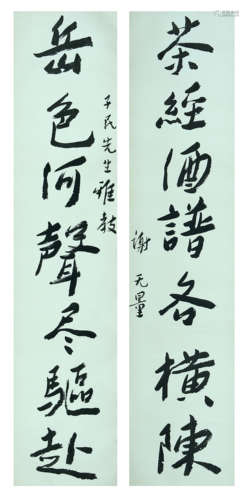 茶經酒譜各橫陳
謝无量
子民先生雅教
岳色河聲尽驅赴